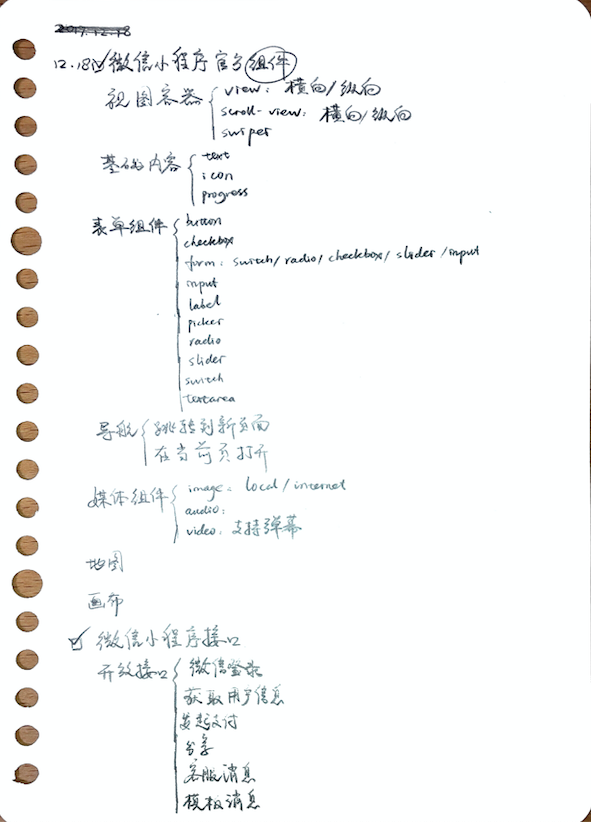 2017.12.18
12.18 微信小程序官方组件
视图容器 { view: 横向/纵向
scroll-view: 横向/纵向
swiper
基础内容 { text
icon
progress
表单组件 { button
checkbox
form: switch/radio/checkbox/slider/input
input
label
picker
radio
slider
switch
textarea
导航 { 跳转到新页面
在当前页打开
媒体组件 { image: local/internet
audio:
video: 支持弹幕
地图
画布
微信小程序接口
开放接口 { 微信登录
获取用户信息
发起支付
分享
客服消息
模板消息